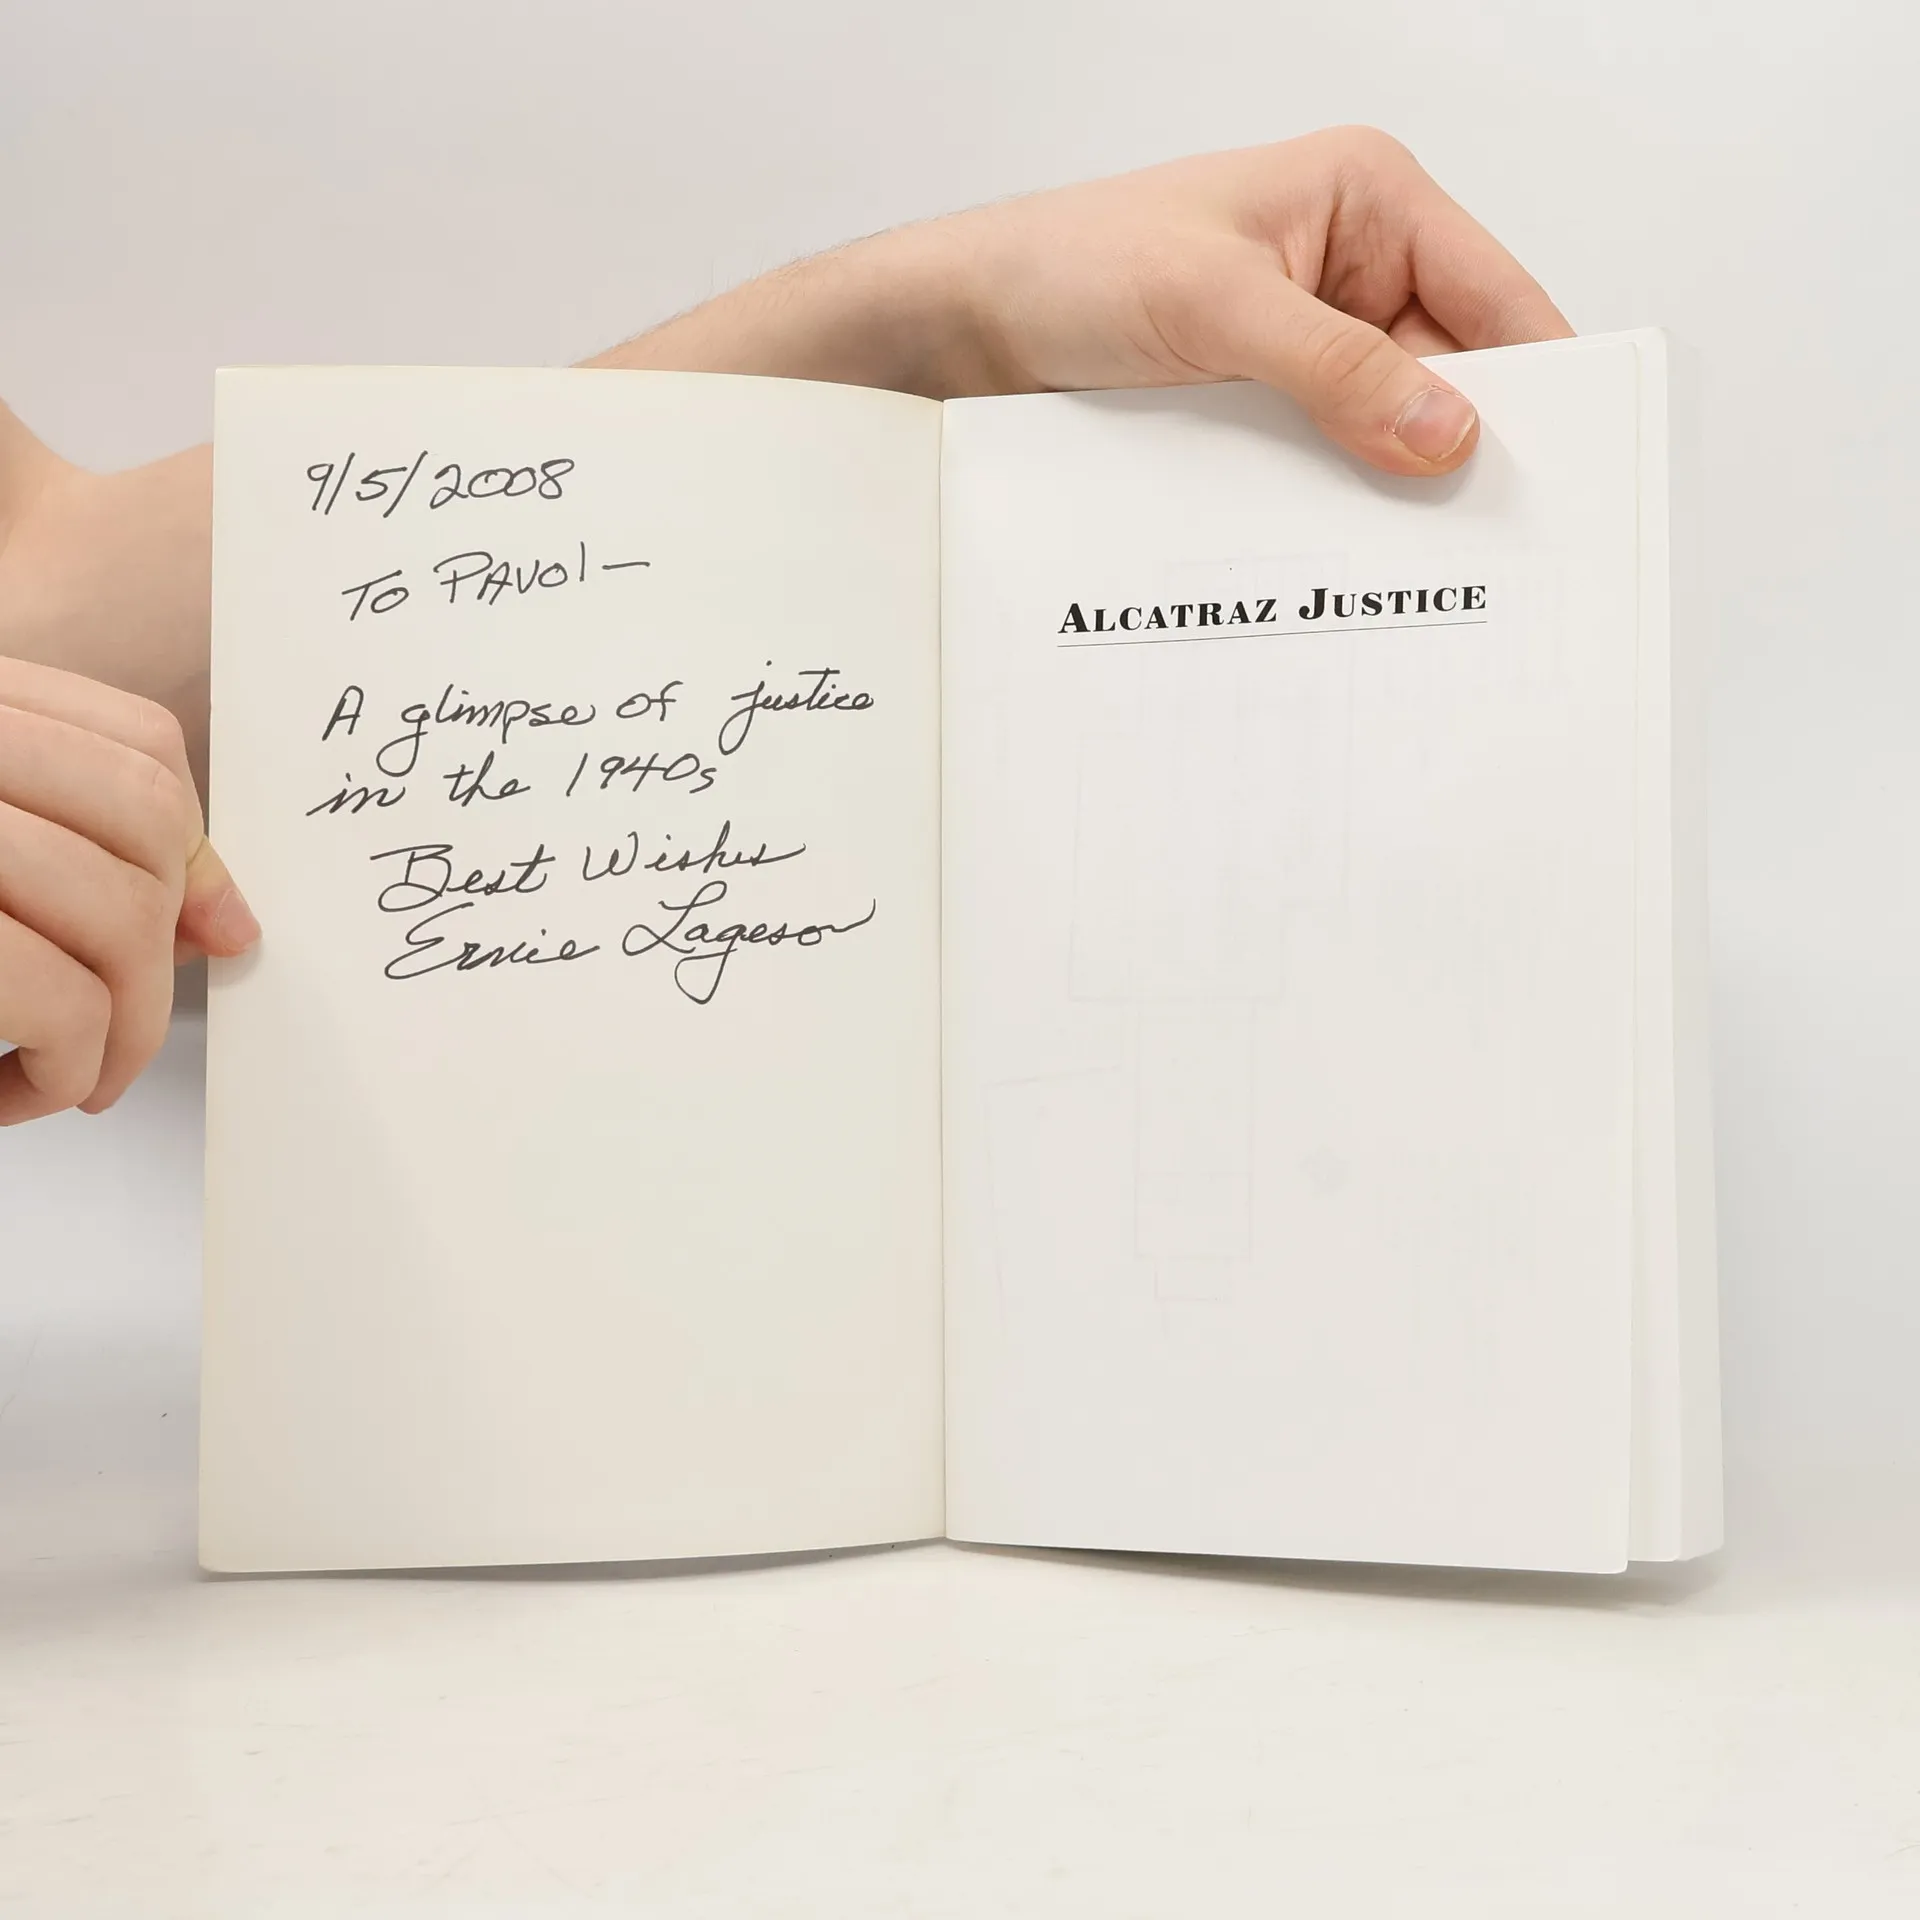 9/5/2008
To PAVOl —
A glimpse of justice
in the 1940s
Best Wishes
Ernie Lageson
ALCATRAZ JUSTICE